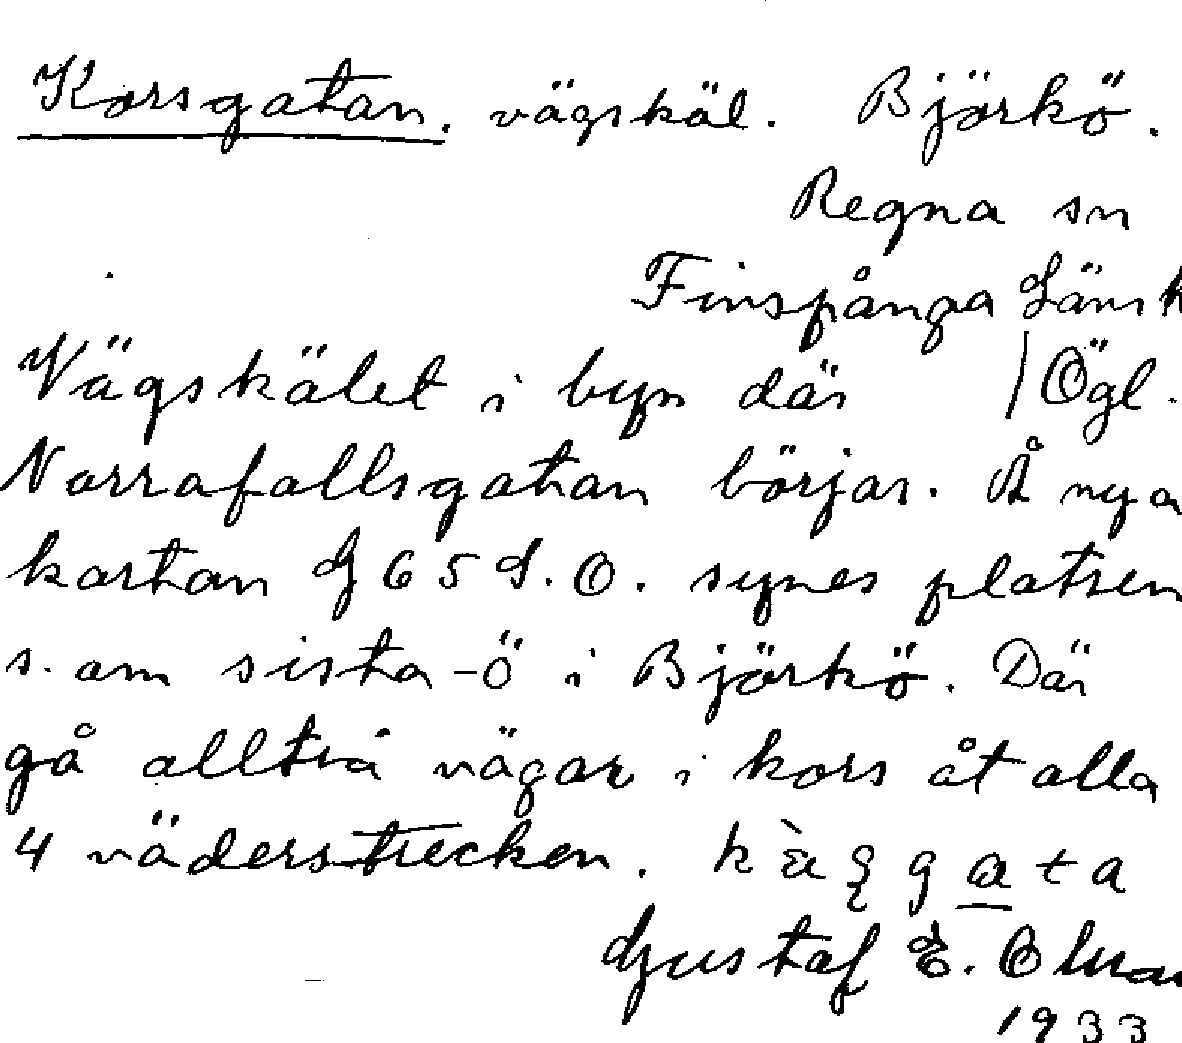 Korsgatan. vägskäl. Björkö.
Regna sn
Finspånga Länsh
Vägskälet i byn där / Ögl.
Norrafallsgatan börjar. Å nya
kartan G 65 S.O. synes platsen
s. om sista -ö i Björkö. Där
gå alltså vägar i kors åt alla
4 väderstrecken.
Gustaf E.
1933